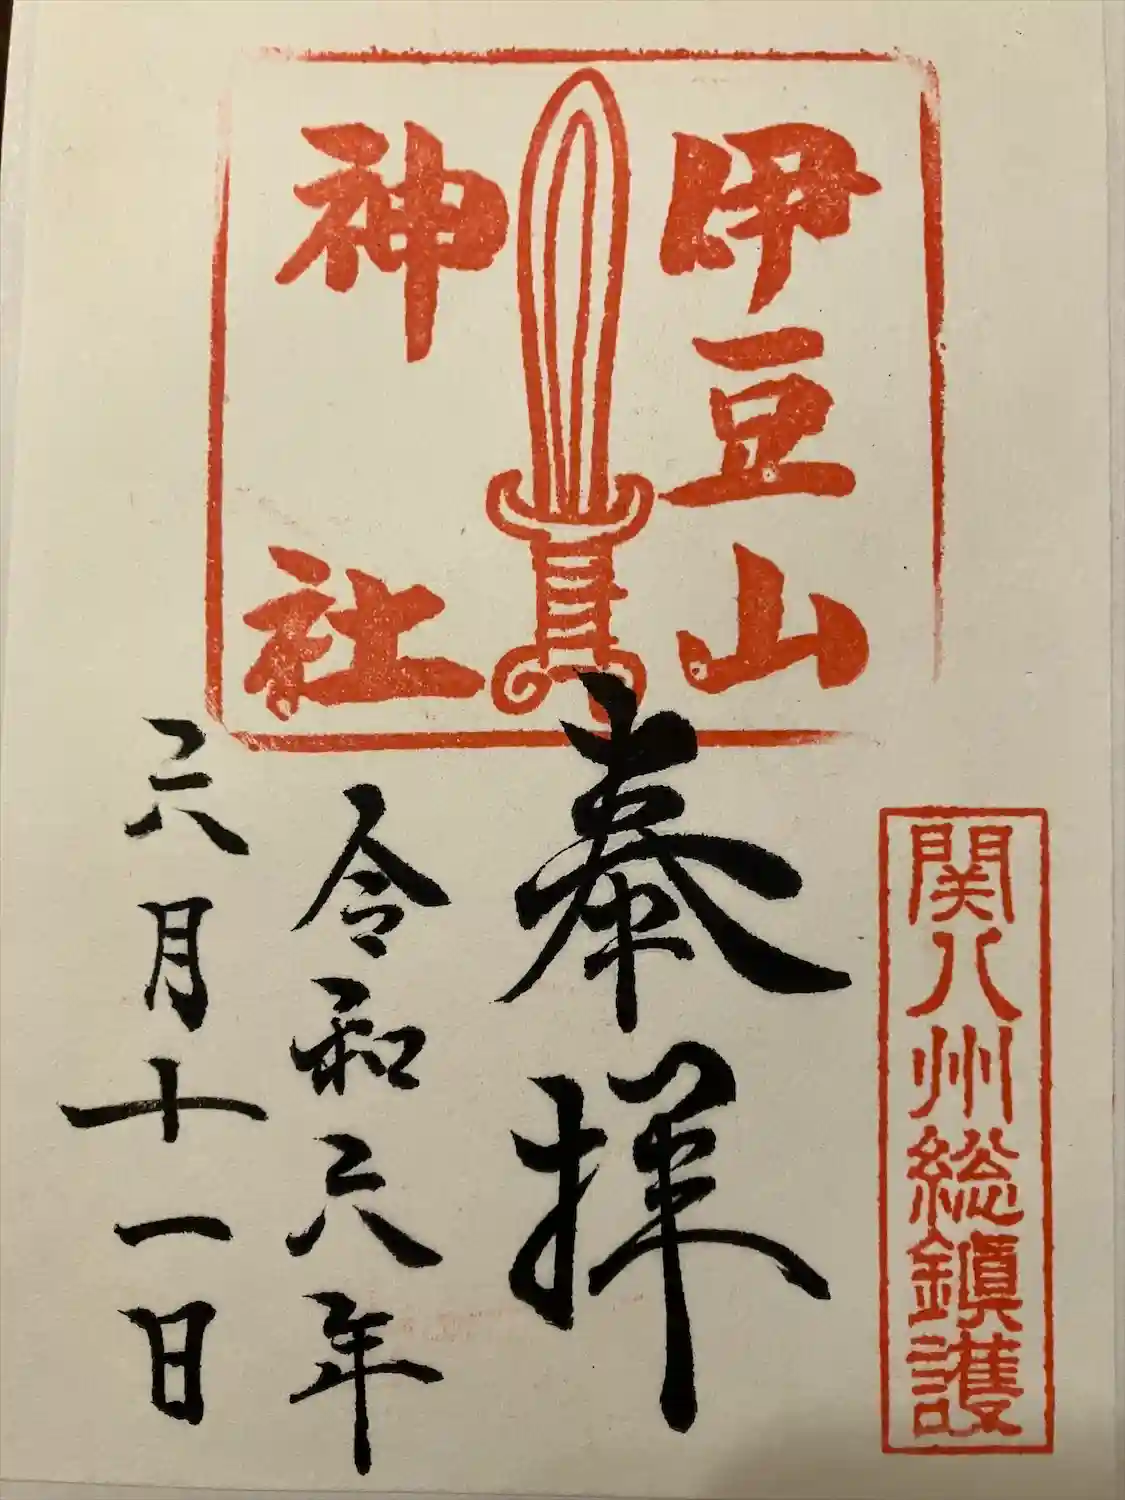 伊豆山
神社
関八州総鎮護
奉拝
令和六年
六月十一日